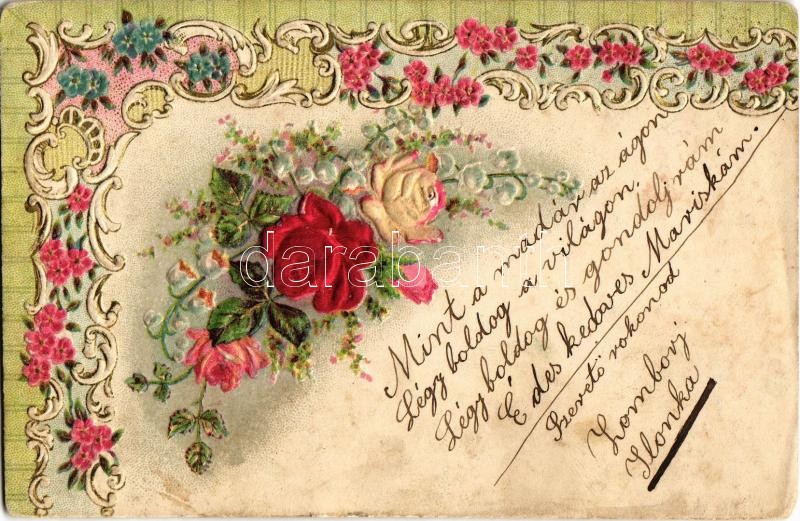 Mint a madár az ágon
Légy boldog a világon.
Légy boldog és gondolj rám
Édes kedves Mariskám.
Szerető rokonod
Zomborj
Ilonka
darabanth